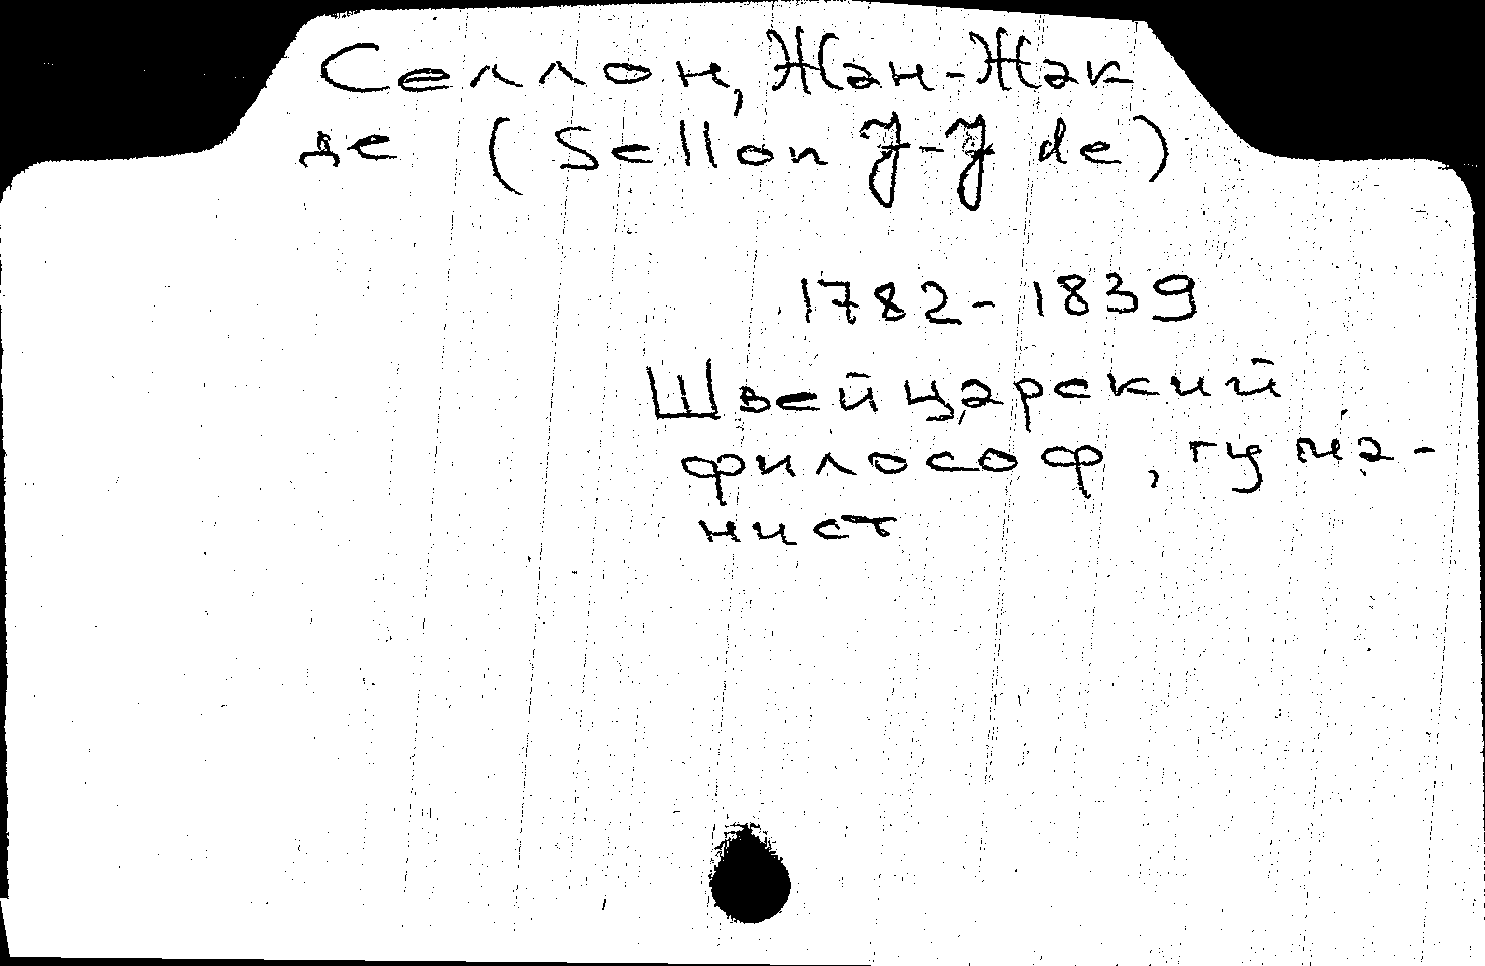 Селлон, Жан-Жак
де (Sellon J-J de)
1782-1839
Швейцарский
философ, гума-
нист